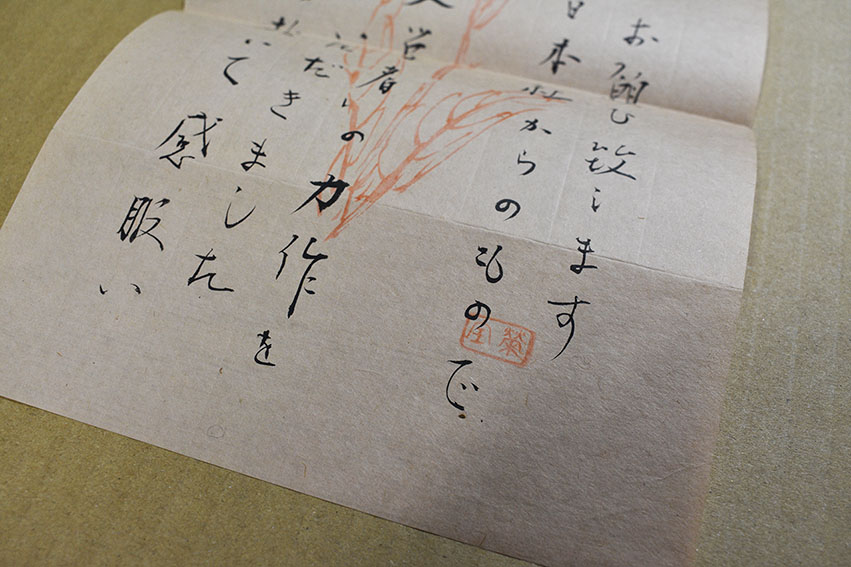 お願ひ致します
日本からのもので
営者らの力作を
だきました
いて感服い